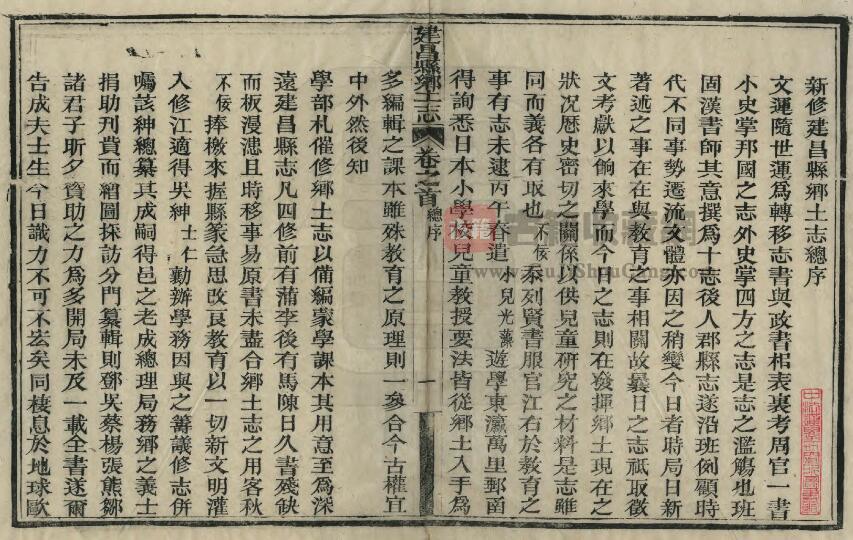 新修建昌縣鄉土志總序
文運隨世運爲轉移志書與政書相表裏考周官一書
小史掌邦國之志外史掌四方之志是志之濫觴也班
固漢書師其意撰爲十志後人郡縣志遂沿班例顧時
代不同事勢遷流文體亦因之稍變今日者時局日新
著述之事在在與教育之事相關故曩日之志祇取徵
文考獻以餉來學而今日之志則在發揮鄉土現在之
狀况歷史密切之關係以供兒童硏究之材料是志雖
同而義各有取也不佞忝列賢書服官江右於教育之
事有志未逮丙午春遣兒光藻遊學東瀛萬里郵函
得詢悉日本小學校兒童教授要法皆從鄉土入手爲
建昌縣鄉土志
卷之首
總序
一
多編輯之課本雖殊教育之原理則一參合今古權宜
中外然後知
學部札催修鄉土志以備編蒙學課本其用意至爲深
遠建昌縣志凡四修前有蒲李後有馬陳日久書殘缺
而板漫漶且時移事易原書未盡合鄉土志之用客秋
不佞捧檄來握縣篆急思改良教育以一切新文明灌
入修江適得吳紳士仁勷辦學務因與之籌議修志併
囑該紳總纂其成嗣得邑之老成總理局務鄉之義士
捐助刊貲而繪圖採訪分門纂輯則鄧吳蔡楊張熊鄒
諸君子昕夕贊助之力爲多開局未及一載全書遂爾
告成夫士生今日識力不可不宏矣同棲息於地球歐
古籍收藏網